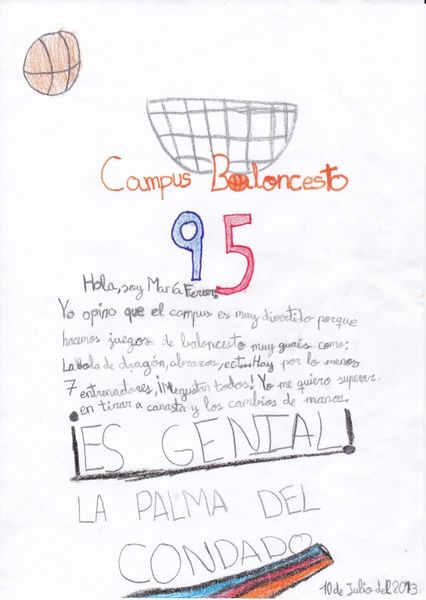 Campus Baloncesto
95
Hola, soy María Ferrer
Yo opino que el campus es muy divertido porque
hacemos juegos de baloncesto muy guais como:
La bola de dragón, abrazos, ect... Hay por lo menos
7 entrenadores, ¡Me gustan todos! Yo me quiero superar
en tirar a canasta y los cambios de manos.
¡ES GENIAL!
LA PALMA DEL
CONDADO
10 de Julio del 2013